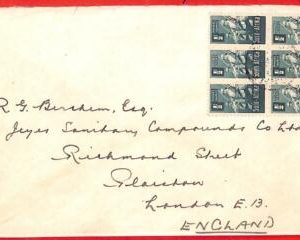 R. G. Bershem, Esq.
Jeyes Sanitary Compounds Co Ltd
Richmond Street
Plaistow
London E.13.
ENGLAND